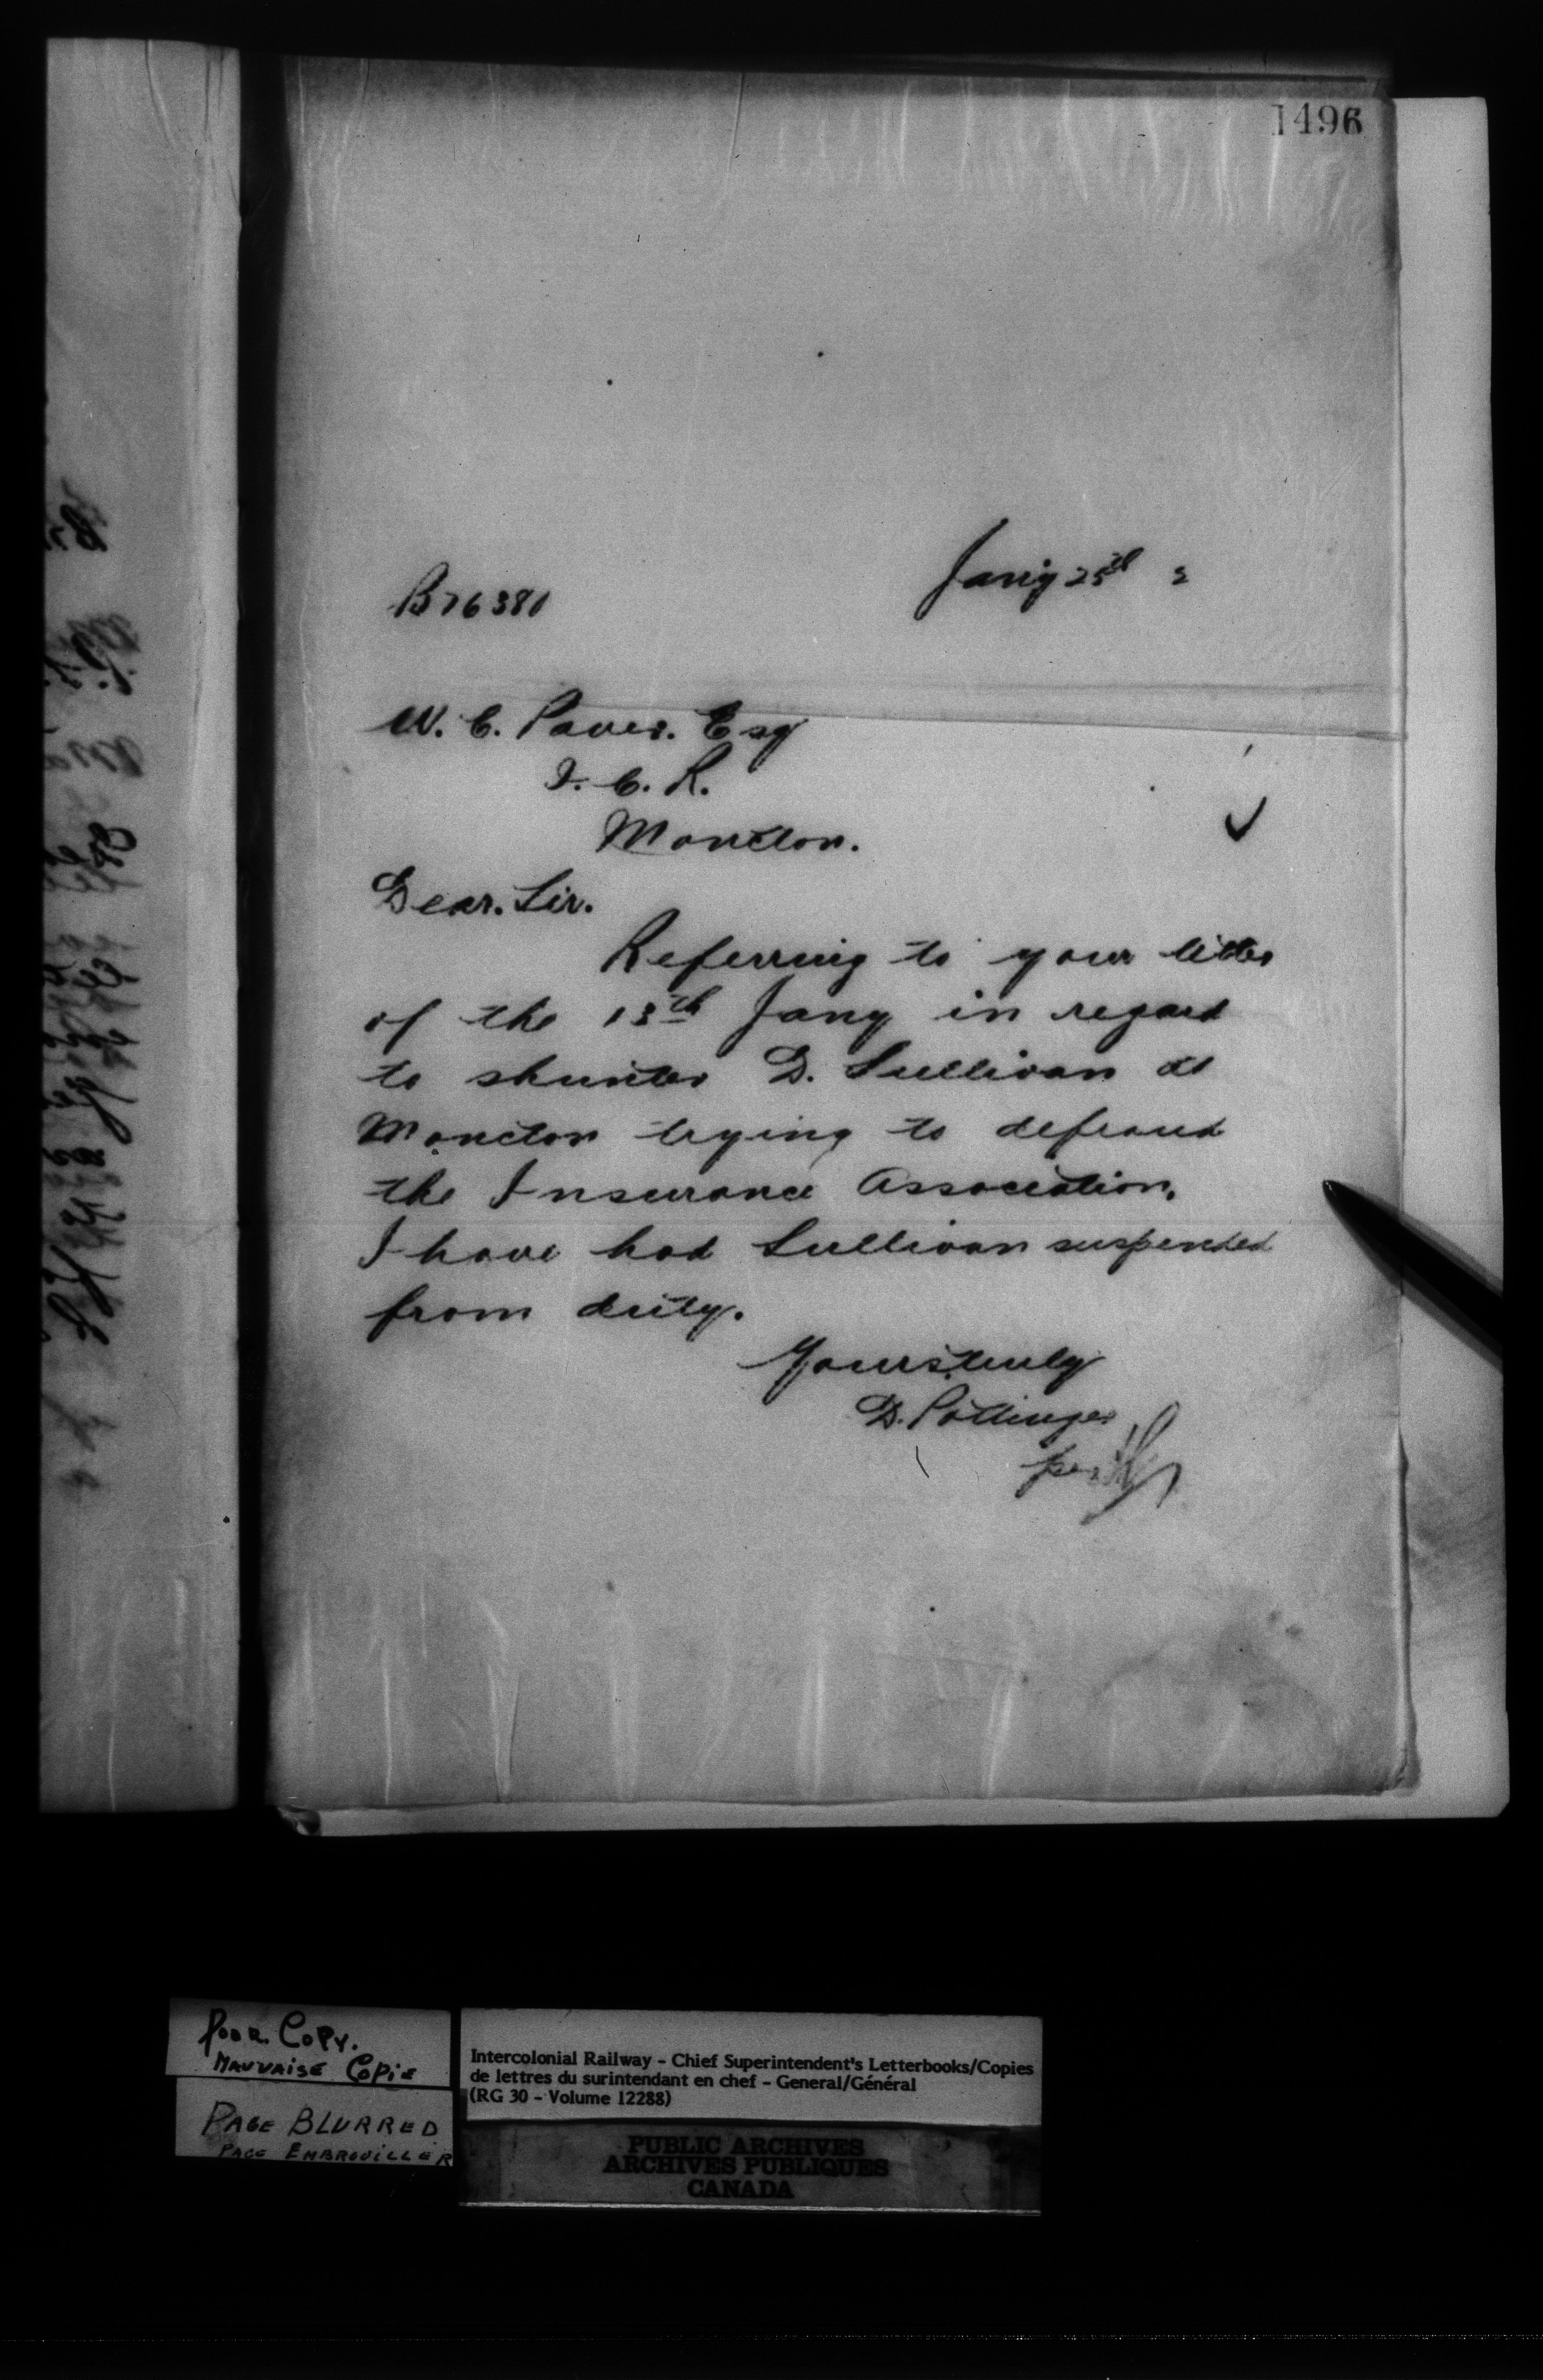 1496
B76380
Jan'y 25th 2
W. C. Paver. Esq
I. C. R.
Moncton.
Dear. Sir.
Referring to your letter
of the 13th Jany in regard
to shunter D. Sullivan at
Moncton trying to defraud
the Insurance Association,
I have had Sullivan suspended
from duty.
Yours truly
D. Pottinger
per
POOR COPY.
MAUVAISE COPIE
PAGE BLURRED
PAGE EMBROUILLER
Intercolonial Railway - Chief Superintendent's Letterbooks/Copies
de lettres du surintendant en chef - General/Général
(RG 30 - Volume 12288)
PUBLIC ARCHIVES
ARCHIVES PUBLIQUES
CANADA